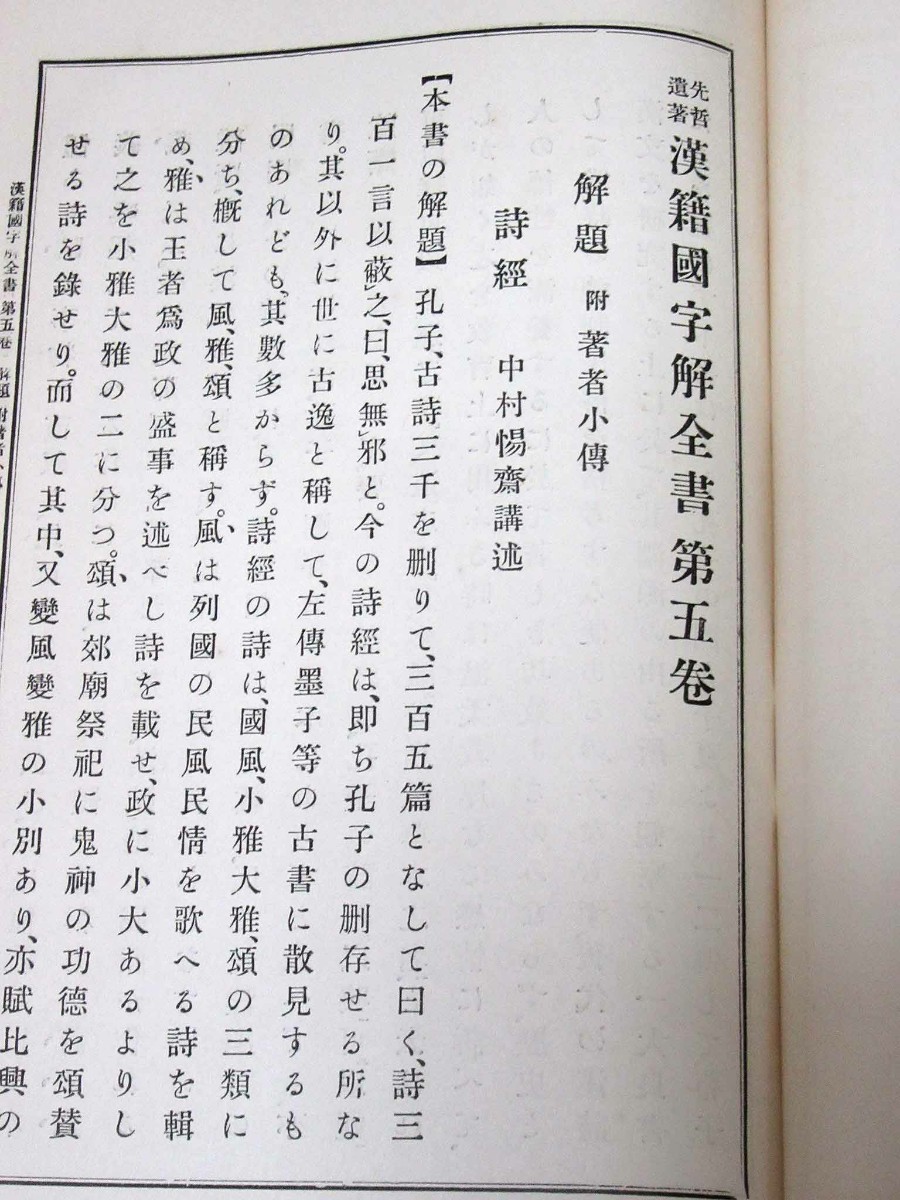 先哲遺著 漢籍國字解全書第五卷
解題 附 著者小傳
詩經 中村惕齋講述
【本書の解題】孔子、古詩三千を删りて、三百五篇となして曰く、詩三
百一言以蔽之、曰、思無邪と。今の詩經は、即ち孔子の删存せる所な
り。其以外に世に古逸と稱して、左傳墨子等の古書に散見するも
のあれども、其數多からず。詩經の詩は、國風、小雅大雅、頌の三類に
分ち、槪して風、雅、頌と稱す。風は列國の民風民情を歌へる詩を輯
め、雅は王者爲政の盛事を述べし詩を載せ、政に小大あるよりし
て之を小雅大雅の二に分つ。頌は郊廟祭祀に鬼神の功德を頌賛
せる詩を錄せり。而して其中、又變風變雅の小別あり、亦賦比興の
漢籍國字解全書 第五卷 解題 附著者小傳